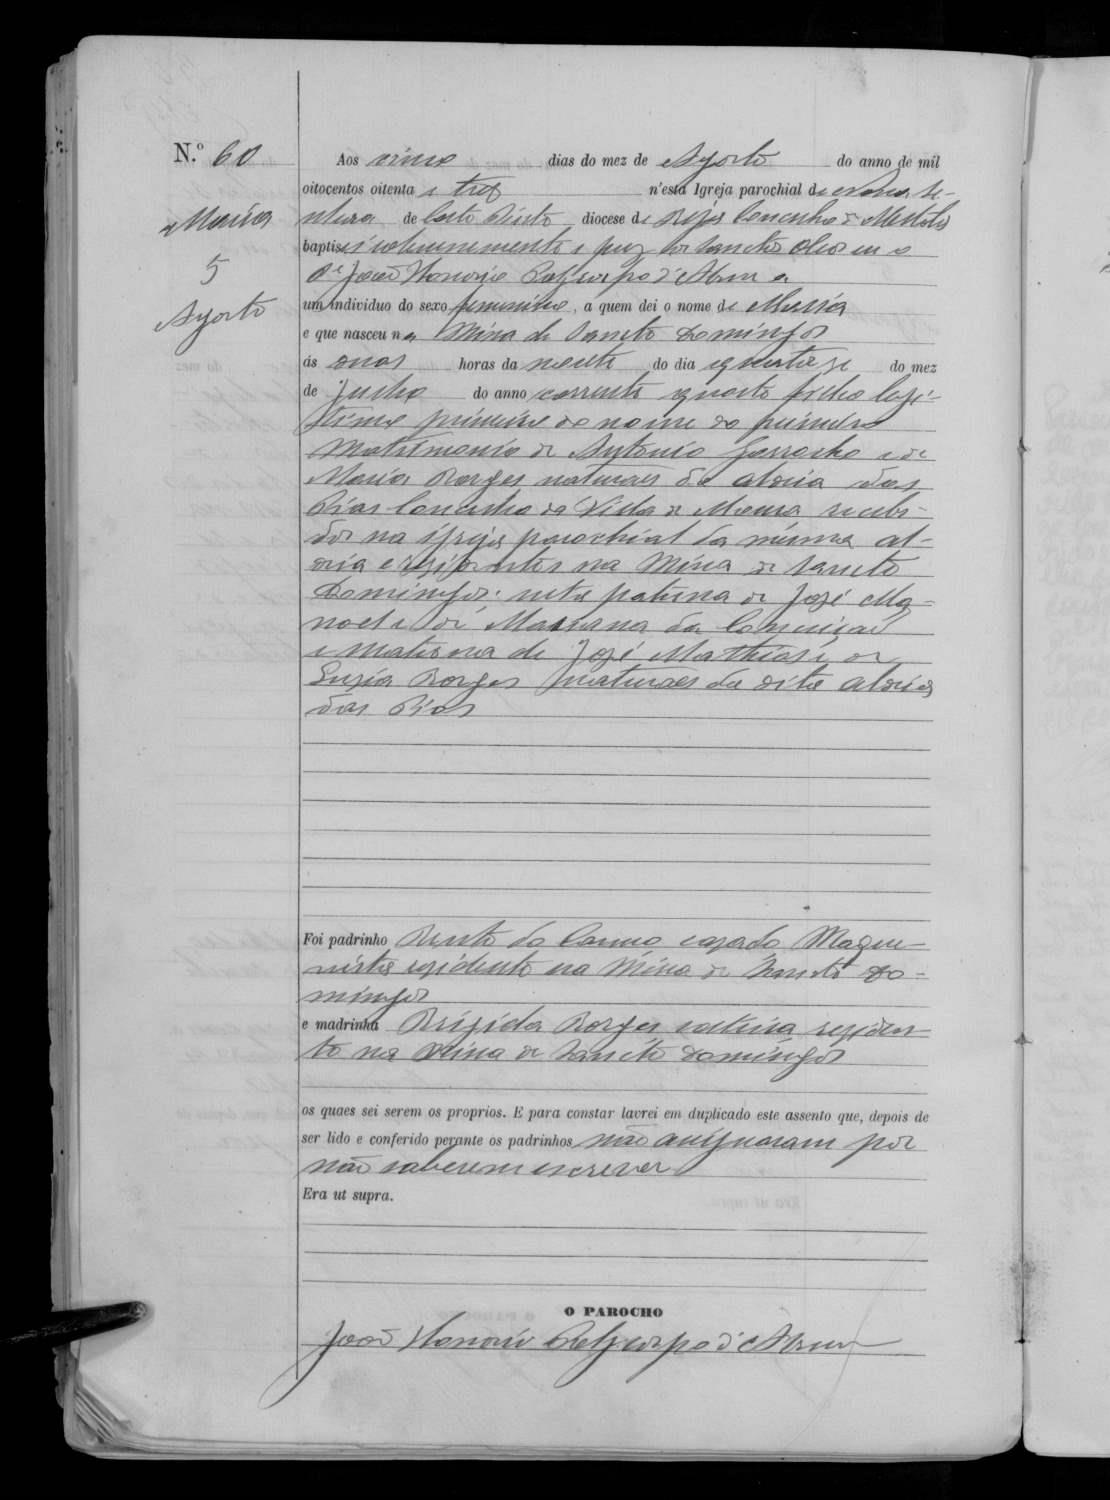 N.º 60
Maria
5
Agosto
Aos cinco dias do mez de Agosto do anno de mil
oitocentos oitenta e tres n'esta Igreja parochial de
de Corte Pinto diocese de Beja Concelho de Mertola
baptisei solemnemente e puz os Sanctos Oleos eu o
Pe João Honorio Polycarpo d'Abreu a
um individuo do sexo feminino, a quem dei o nome de Maria
e que nasceu na Mina de Sancto Domingos
ás onze horas da noute do dia quatorze do mez
de Julho do anno corrente quarto filho legi-
timo primeiro do nome do primeiro
Matrimonio de Antonio Garrocho e de
Maria Borges naturaes da aldeia das
Pias Concelho da Villa de Moura recebi-
dos na igreja parochial da mesma al-
deia e residentes na Mina de Sancto
Domingos: neta paterna de José Ma-
noel e de Marianna da Conceição
e materna de José Mathias e de
Luzia Borges naturaes da dita aldeia
das Pias
Foi padrinho Bento do Carmo casado Maque-
nista residente na Mina de Sancto Do-
mingos
e madrinha Brizida Borges solteira residen-
te na Mina de Sancto Domingos
os quaes sei serem os proprios. E para constar lavrei em duplicado este assento que, depois de
ser lido e conferido perante os padrinhos não assignaram por
não saberem escrever
Era ut supra.
O PAROCHO
João Honorio Polycarpo d'Abreu